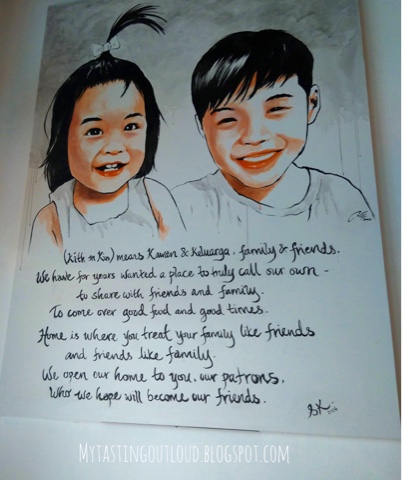 (Kith n Kin) means Kawan & Keluarga, family & friends.
We have for years wanted a place to truly call our own -
to share with friends and family.
To come over good food and good times.
Home is where you treat your family like friends
and friends like family.
We open our home to you, our patrons,
Who we hope will become our friends.
MYTASTINGOUTLOUD.BLOGSPOT.COM